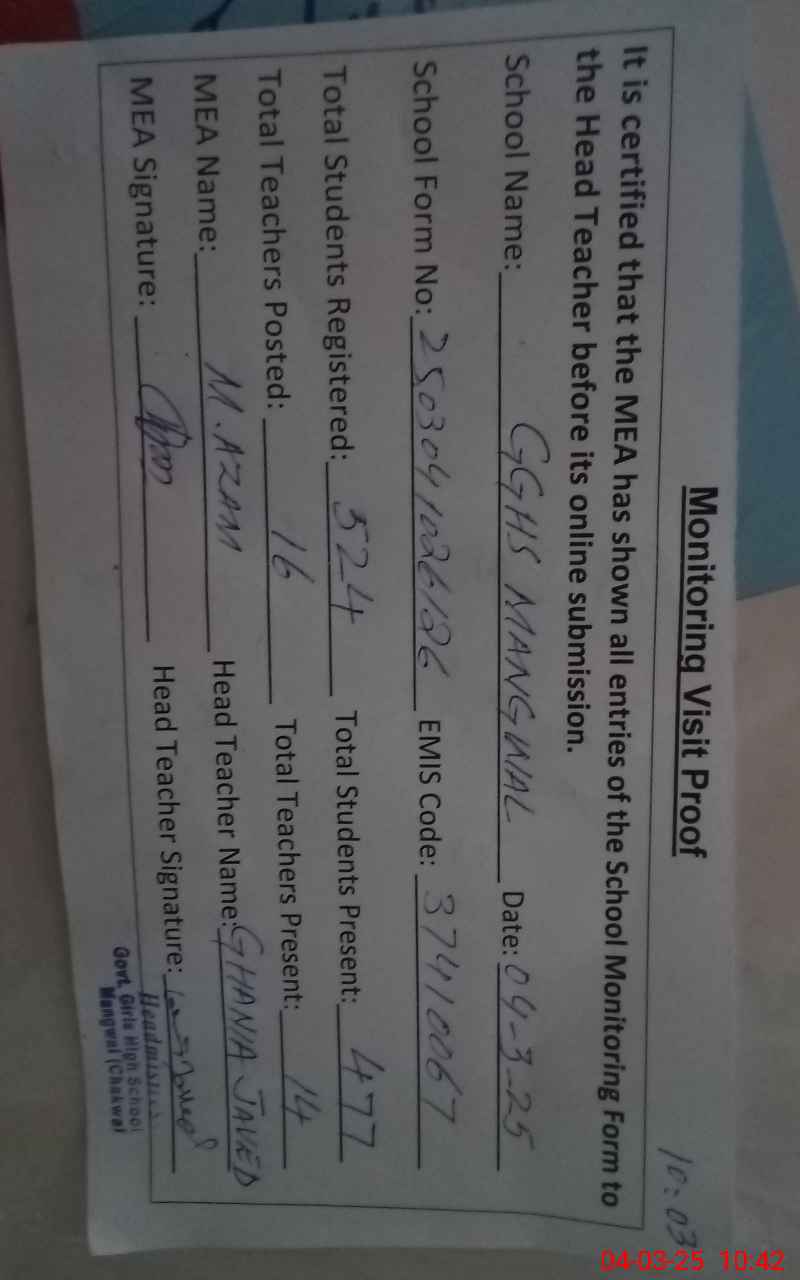 10:03
Monitoring Visit Proof
It is certified that the MEA has shown all entries of the School Monitoring Form to
the Head Teacher before its online submission.
School Name: GGHS MANGWAL Date: 04-3-25
School Form No: 2503041026126 EMIS Code: 37410067
Total Students Registered: 524 Total Students Present: 477
Total Teachers Posted: 16 Total Teachers Present: 14
MEA Name: M.AZAM Head Teacher Name: GHANIA JAVED
MEA Signature: Head Teacher Signature:
Headmistress
Govt. Girls High School
Mangwal (Chakwal
04-03-25 10:42